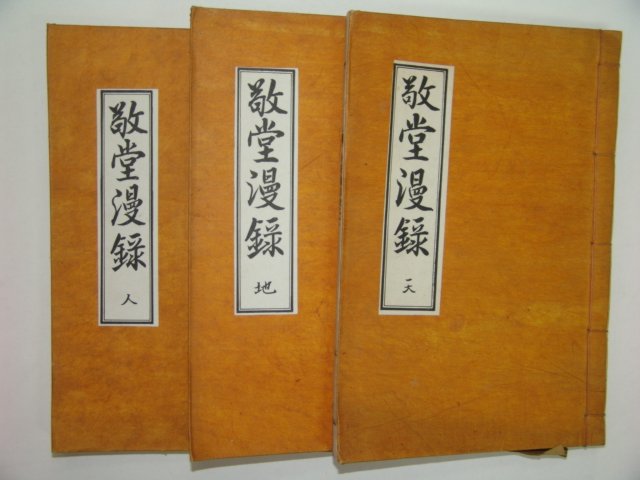 敬堂漫錄
天
敬堂漫錄
地
敬堂漫錄
人